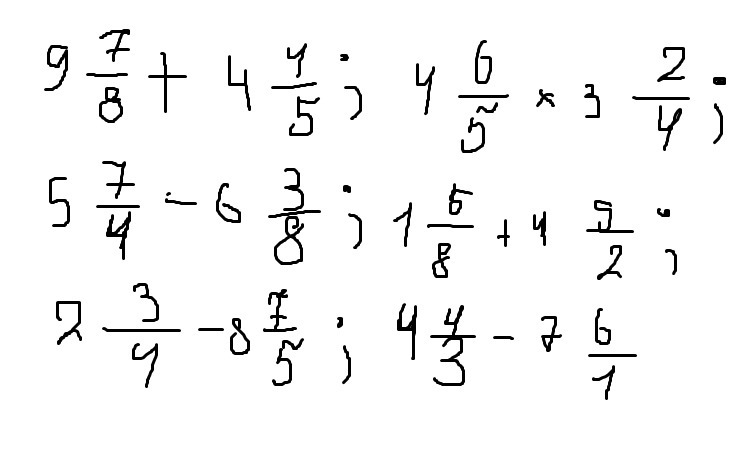 9 7/8 + 4 4/5 ; 4 6/5 × 3 2/4 ;
5 7/4 - 6 3/8 ; 1 5/8 + 4 9/2 ;
2 3/4 - 8 7/5 ; 4 4/3 - 7 6/1